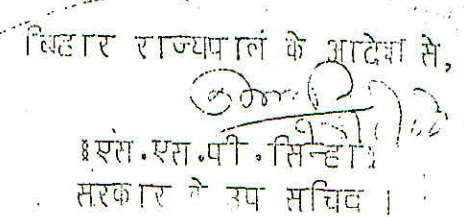 बिहार राज्यपाल के आदेश से,
॥एस.एस.पी.सिन्हा॥
सरकार के उप सचिव ।